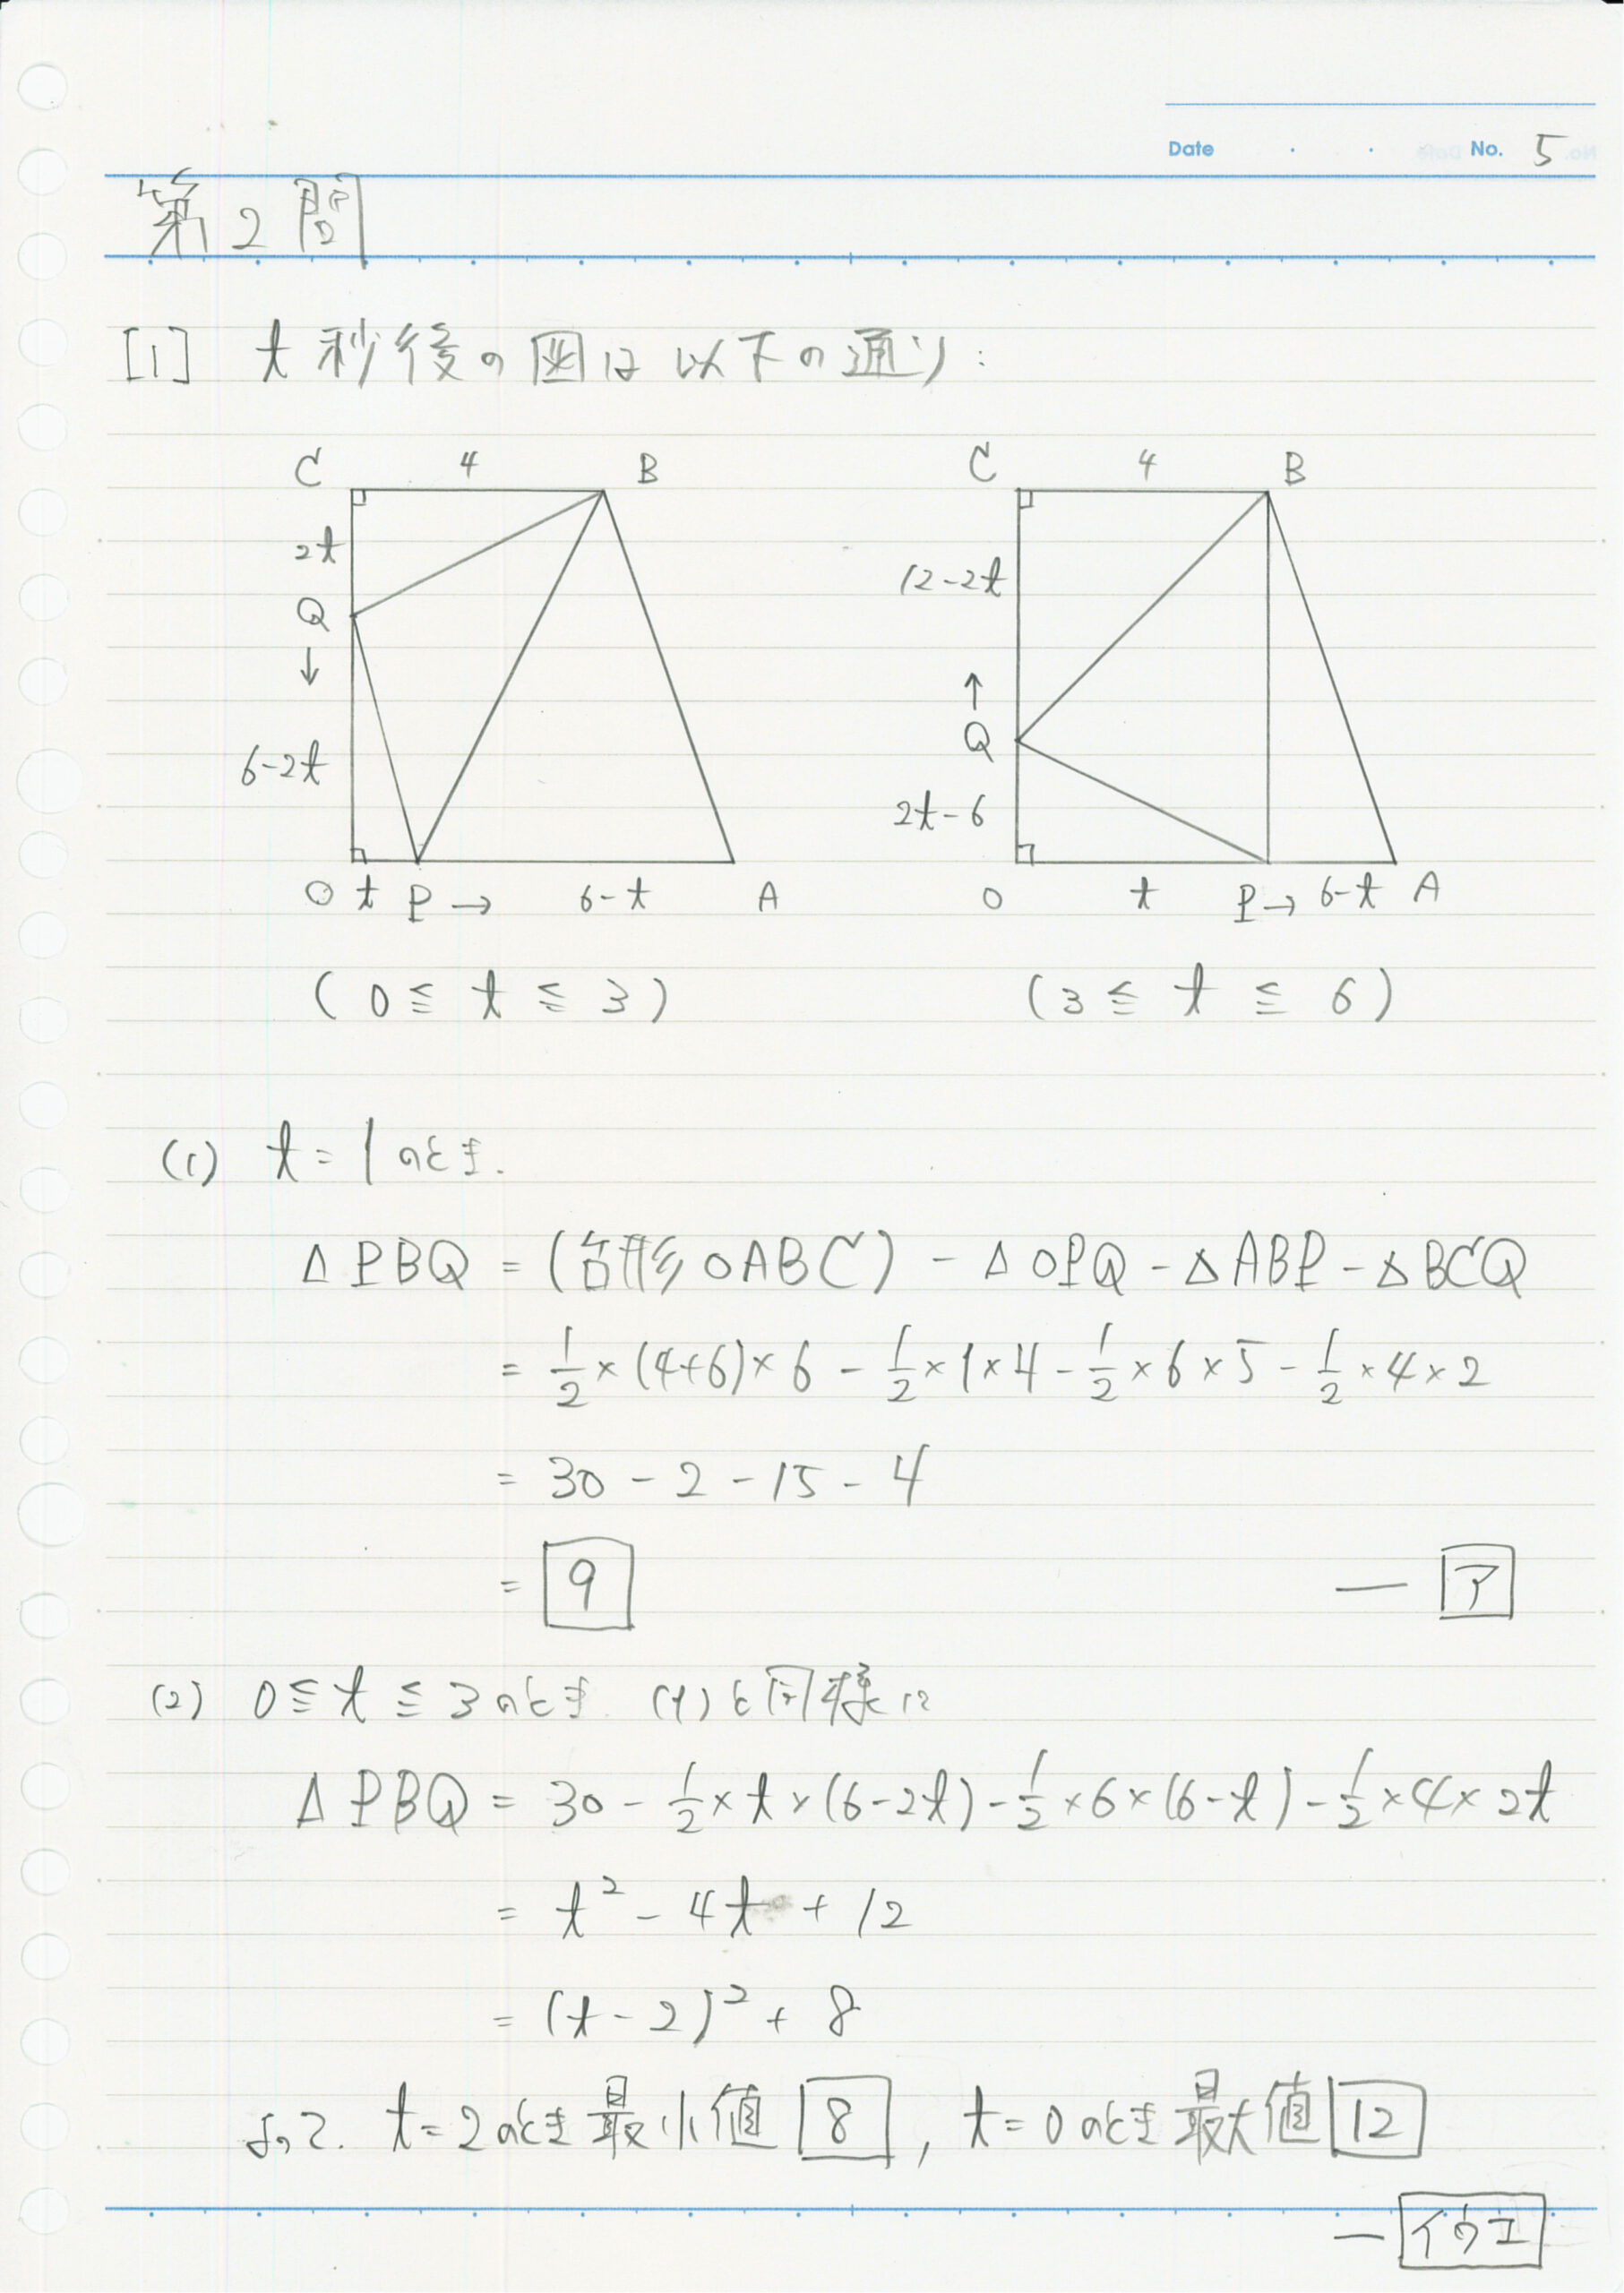 Date . . No. 5
第2問
[1] t秒後の図は以下の通り:
C 4 B
2t
Q
↓
6-2t
O t P → 6-t A
(0≦t≦3)
C 4 B
12-2t
↑
Q
2t-6
O t P→ 6-t A
(3≦t≦6)
(1) t=1のとき.
△PBQ = (台形OABC) - △OPQ - △ABP - △BCQ
= 1/2×(4+6)×6 - 1/2×1×4 - 1/2×6×5 - 1/2×4×2
= 30 - 2 - 15 - 4
= 9 — ア
(2) 0≦t≦3のとき. (1)と同様に
△PBQ = 30 - 1/2×t×(6-2t) - 1/2×6×(6-t) - 1/2×4×2t
= t² - 4t + 12
= (t-2)² + 8
よって. t=2のとき最小値 8 , t=0のとき最大値 12
— イウエ